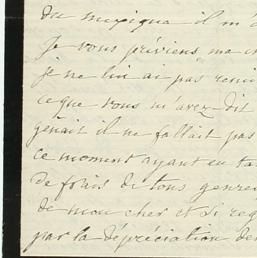 du mexique il m'a
Je vous préviens ma
je ne lui ai pas remis
ce que vous m'avez dit
gênait il ne fallait pas
ce moment ayant eu ta
de frais de tous genres
de mon cher et si reg
par la dépréciation de